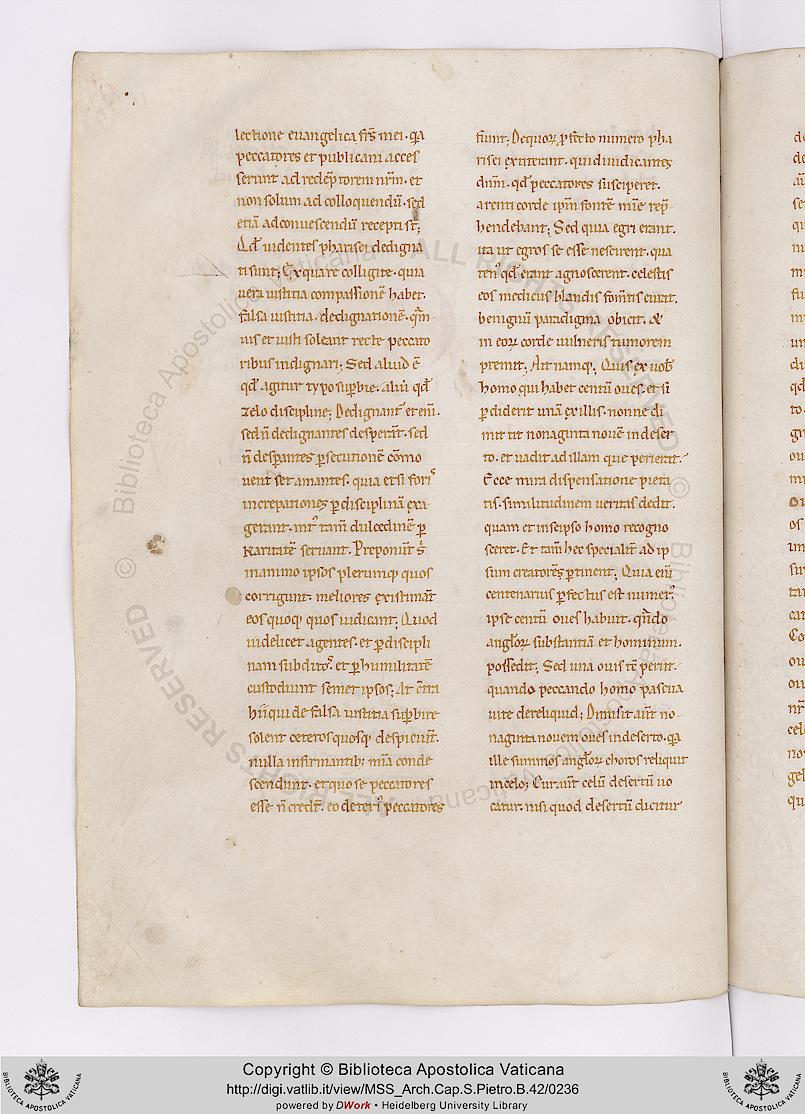 lectione euangelica frs̄ mei. q̄a
peccatores et publicani acces
serunt ad redēptorem nrm̄. et
non solum ad colloquendū. sed
etiā ad conuescendū recepti st̄;
Qđ uidentes pharisei dedigna
ti sunt; Ex qua re colligite. quia
uera iustitia compassionē habet.
falsa iustitia. dedignationē. qm̄
uis et iusti soleant recte peccato
ribus indignari; Sed aliud ē
qđ agitur typo supbie. aliud qđ
zelo discipline; Dedignant̄ etem̄.
sed n̄ dedignantes desperant̄. sed
n̄ despantes psecutionē cōmo
uent set amantes. quia etsi foris
increpationes p disciplinā exa
gerant. intus tam̄ dulcedinē p
karitatē seruant. Preponunt s
in animo ipsos plerumq; quos
corrigunt. meliores existimāt
eos quoq; quos iudicant; Quod
uidelicet agentes. et p discipli
nam subditos. et p humilitatē
custodiunt semet ipsos; At cōtra
hii qui de falsa iustitia supbire
solent ceteros quosq; despiciunt̄.
nulla infirmantib; mīa conde
scendunt. et quo se peccatores
esse n̄ credt̄. eo deterius peccatores
fiunt; De quoꝝ pfecto numero pha
risei extiterant. qui diiudicantes
dnm̄. qđ peccatores susciperet.
arenti corde ipm̄ fontē mīe rep̄
hendebant; Sed quia egri erant.
ita ut egros se esse nescirent. qua
tenus qđ erant agnoscerent. celestis
eos medicus blandis fom̄tis curat.
benignū paradigma obicit. &
in eoꝝ corde uulneris tumorem
premit; Ait namq;. Quis ex uob̄
homo qui habet centū oues. et si
pdiderit unā ex illis. nonne di
mittit nonaginta nouē in deser
to. et uadit ad illam que perierat.
Ecce mira dispensatione pieta
tis. similitudinem ueritas dedit.
quam et in se ipso homo recogno
sceret. Et tam̄ hec specialit̄ ad ip
sum creatorēs ptinent; Quia em̄
centenarius pfectus est numerus
ipse centū oues habuit. qn̄do
angloꝝ substantiā et hominum.
possedit; Sed una ouis tc̄ periit.
quando peccando homo pascua
uite dereliquid; Dimisit aūt no
naginta nouem oues in deserto. q̄a
ille summos angloꝝ choros reliquit
in celo; Cur aūt celū desertū uo
catur. nisi quod desertū dicitur
Copyright © Biblioteca Apostolica Vaticana
http://digi.vatlib.it/view/MSS_Arch.Cap.S.Pietro.B.42/0236
powered by DWork • Heidelberg University Library